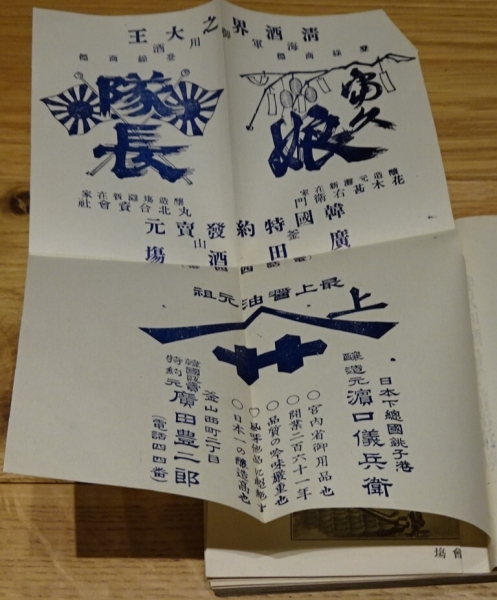 清酒界之大王
海軍御酒
川
登録商標
富久娘
登録商標
隊長
花木甚右衛門
醸造元灘新在家
丸北合資會社
醸造場灘新在家
韓國特約發賣元
釜山
廣田酒場
最上醤油元祖
上
日本下總國銚子港
醸造元 濵口儀兵衛
○宮内省御用品也
○開業二百六十一年
○品質の吟味嚴重也
○日本一の醸造高也
釜山西町二丁目
韓國販賣特約元 廣田豊二郎
(電話四四番)
會場